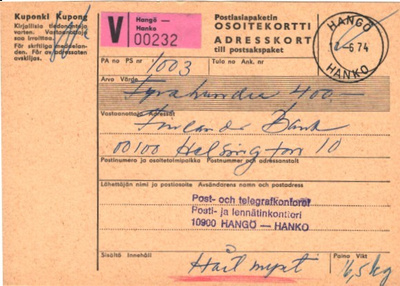 Kuponki Kupong
Kirjallisia tiedonantoja
varten. Vastaanottaja
saa irroittaa.
För skriftliga meddelan-
den. Får av adressaten
avskiljas.
V
Hangö —
Hanko
00232
Postiasiapaketin
OSOITEKORTTI
ADRESSKORT
till postsakspaket
HANGÖ
6 74
HANKO
PA no PS nr 1003
Tulo no Ank. nr
Arvo Värde
Fyrahundra 400.—
Vastaanottaja Adressat
Finlands Bank
00100 Helsingfors 10
Postinumero ja osoitetoimipaikka Postnummer och adressanstalt
Lähettäjän nimi ja postiosoite Avsändarens namn och postadress
Post- och telegrafkontoret
Posti- ja lennätinkonttori
10900 HANGÖ — HANKO
Sisältö Innehåll
Paino Vikt
Hårt mynt
1,5 kg